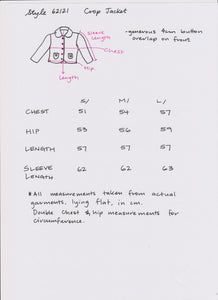 Style 62121 Crop Jacket
Sleeve
Length
- generous 7cm button
overlap on front
Chest
Hip
Length
S/ M/ L/
CHEST 51 54 57
HIP 53 56 59
LENGTH 57 57 57
SLEEVE 62 62 63
LENGTH
* All measurements taken from actual
garments, lying flat, in cm.
Double Chest & hip measurements for
circumference.